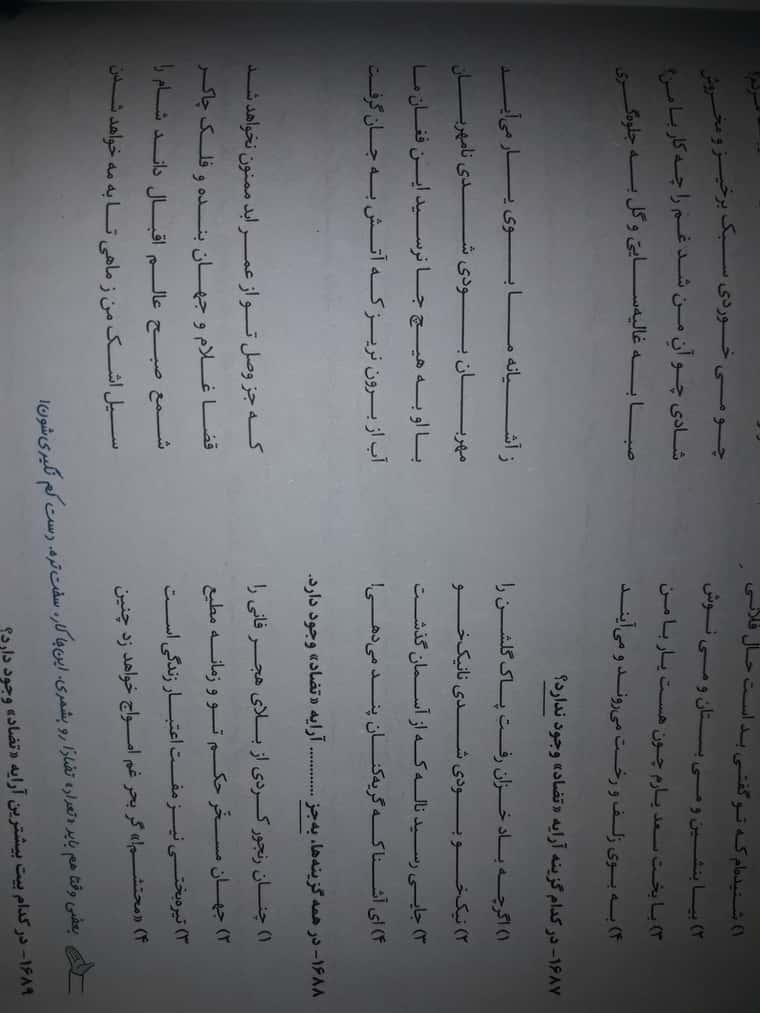 ۱) شنیده‌ام که تو گفتی بد است حال فلانی
۲) بیا بنشین و می بستان و می نوش چو می خوردی سبک برخیز و مخروش
۳) با بخت سعد یارم چون هست یار با من شادی چو آنِ من شد غم را چه کار با من؟
۴) به بوی زلف و رخت می‌روند و می‌آیند صبا به غالیه‌سایی و گل به جلوه‌گری
۱۶۸۷- در کدام گزینه آرایه «تضاد» وجود ندارد؟
۱) اگرچه باد خزان رفت پاک گلشن را ز آشیانه ما بوی یار می‌آید
۲) نیک‌خو بودی شدی نانیک‌خو مهربان بودی شدی نامهربان
۳) جایی رسید ناله که از آسمان گذشت با او به هیچ جا نرسید این فغان ما
۴) ای آشنا که گریه‌کنان پند می‌دهی! آب از برون نریز که آتش به جان گرفت
۱۶۸۸- در همه گزینه‌ها، به‌جز ............ آرایه «تضاد» وجود دارد.
۱) چنان رنجور کردی از بلای هجر فانی را که جز وصل تو از عمر ابد ممنون نخواهد شد
۲) جهان مسخّر حکم تو و زمانه مطیع قضا غلام و جهان بنده و فلک چاکر
۳) تیره‌بختی نیز مفت اعتبار زندگی است شمع صبح عالم اقبال داند شام را
۴) «محتشم!» گر بحر غم امواج خواهد زد چنین سیل اشک من ز ماهی تا به مه خواهد شدن
بعضی وقتا هم باید «تعداد» تضادا رو بشمری. این‌جا کار، سفت‌تره. دست کم نگیری‌شون!
۱۶۸۹- در کدام بیت بیشترین آرایه «تضاد» وجود دارد؟